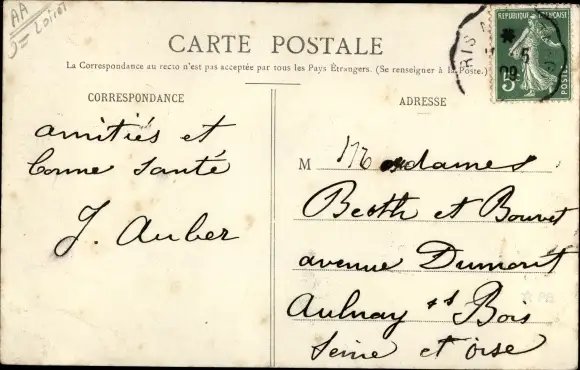 AA
Loiret
CARTE POSTALE
La Correspondance au recto n'est pas acceptée par tous les Pays Étrangers. (Se renseigner à la Poste.)
RÉPUBLIQUE FRANÇAISE
5c
POSTES
RIS
5
09
CORRESPONDANCE
amitiés et
bonne santé
J. Auber
ADRESSE
M Mesdames
Berth et Bouvet
avenue Dumont
Aulnay ss Bois
Seine et oise
PB